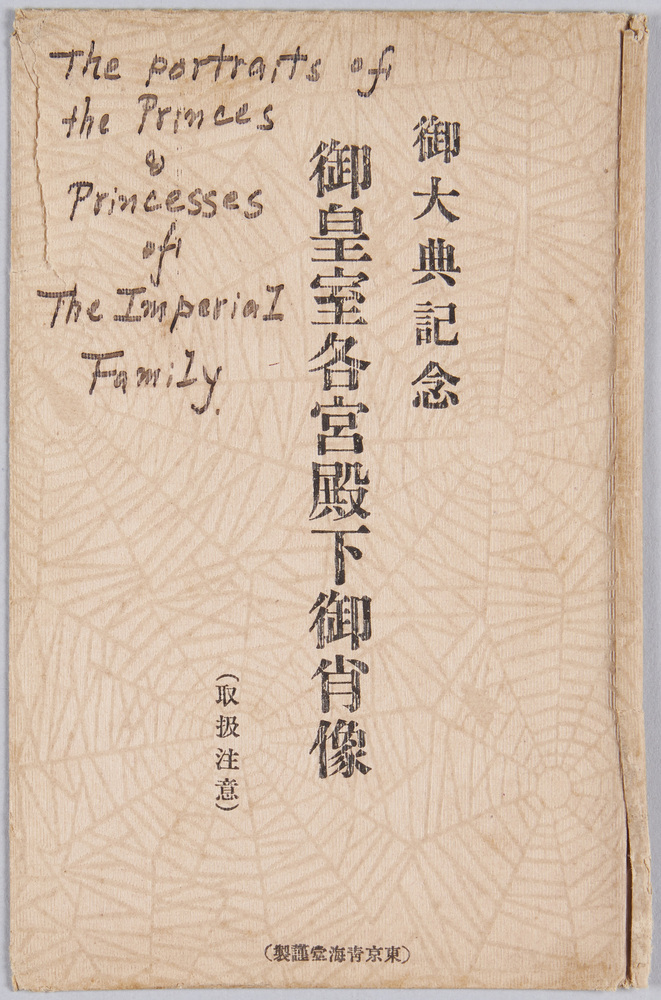 The portraits of
the Princes
&
Princesses
of
The Imperial
Family.
御大典記念
御皇室各宮殿下御肖像
(取扱注意)
(東京青海堂謹製)